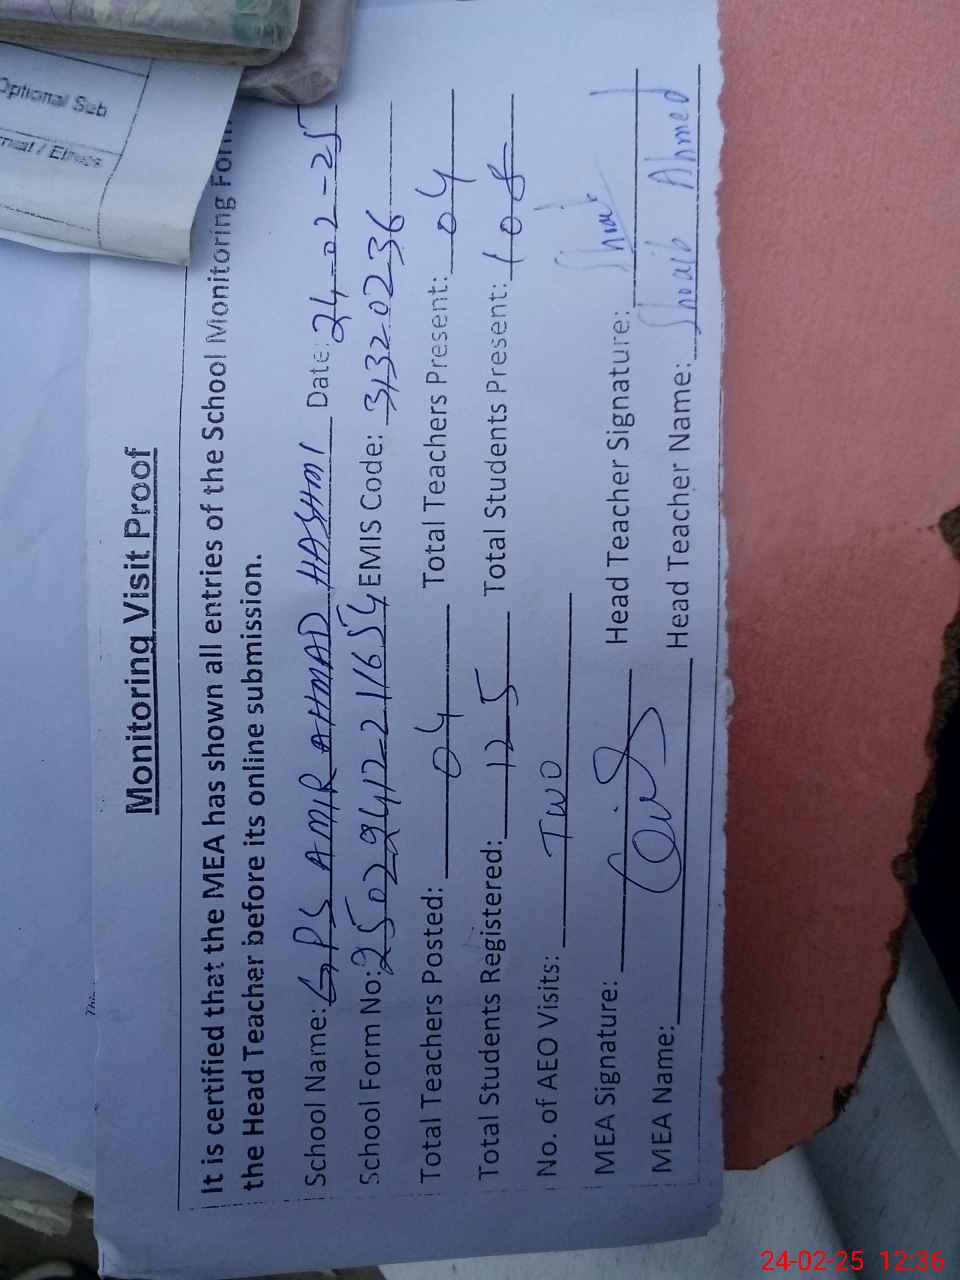 Optional Sub
Monitoring Visit Proof
It is certified that the MEA has shown all entries of the School Monitoring Form
the Head Teacher before its online submission.
School Name: GPS AMIR AHMAD HASHMI Date: 24-02-25
School Form No: EMIS Code: 31320236
Total Teachers Posted: 04 Total Teachers Present: 04
Total Students Registered: 125 Total Students Present: 108
No. of AEO Visits: TWO
MEA Signature: Head Teacher Signature:
MEA Name: Head Teacher Name: Shoaib Ahmed
24-02-25 12:36